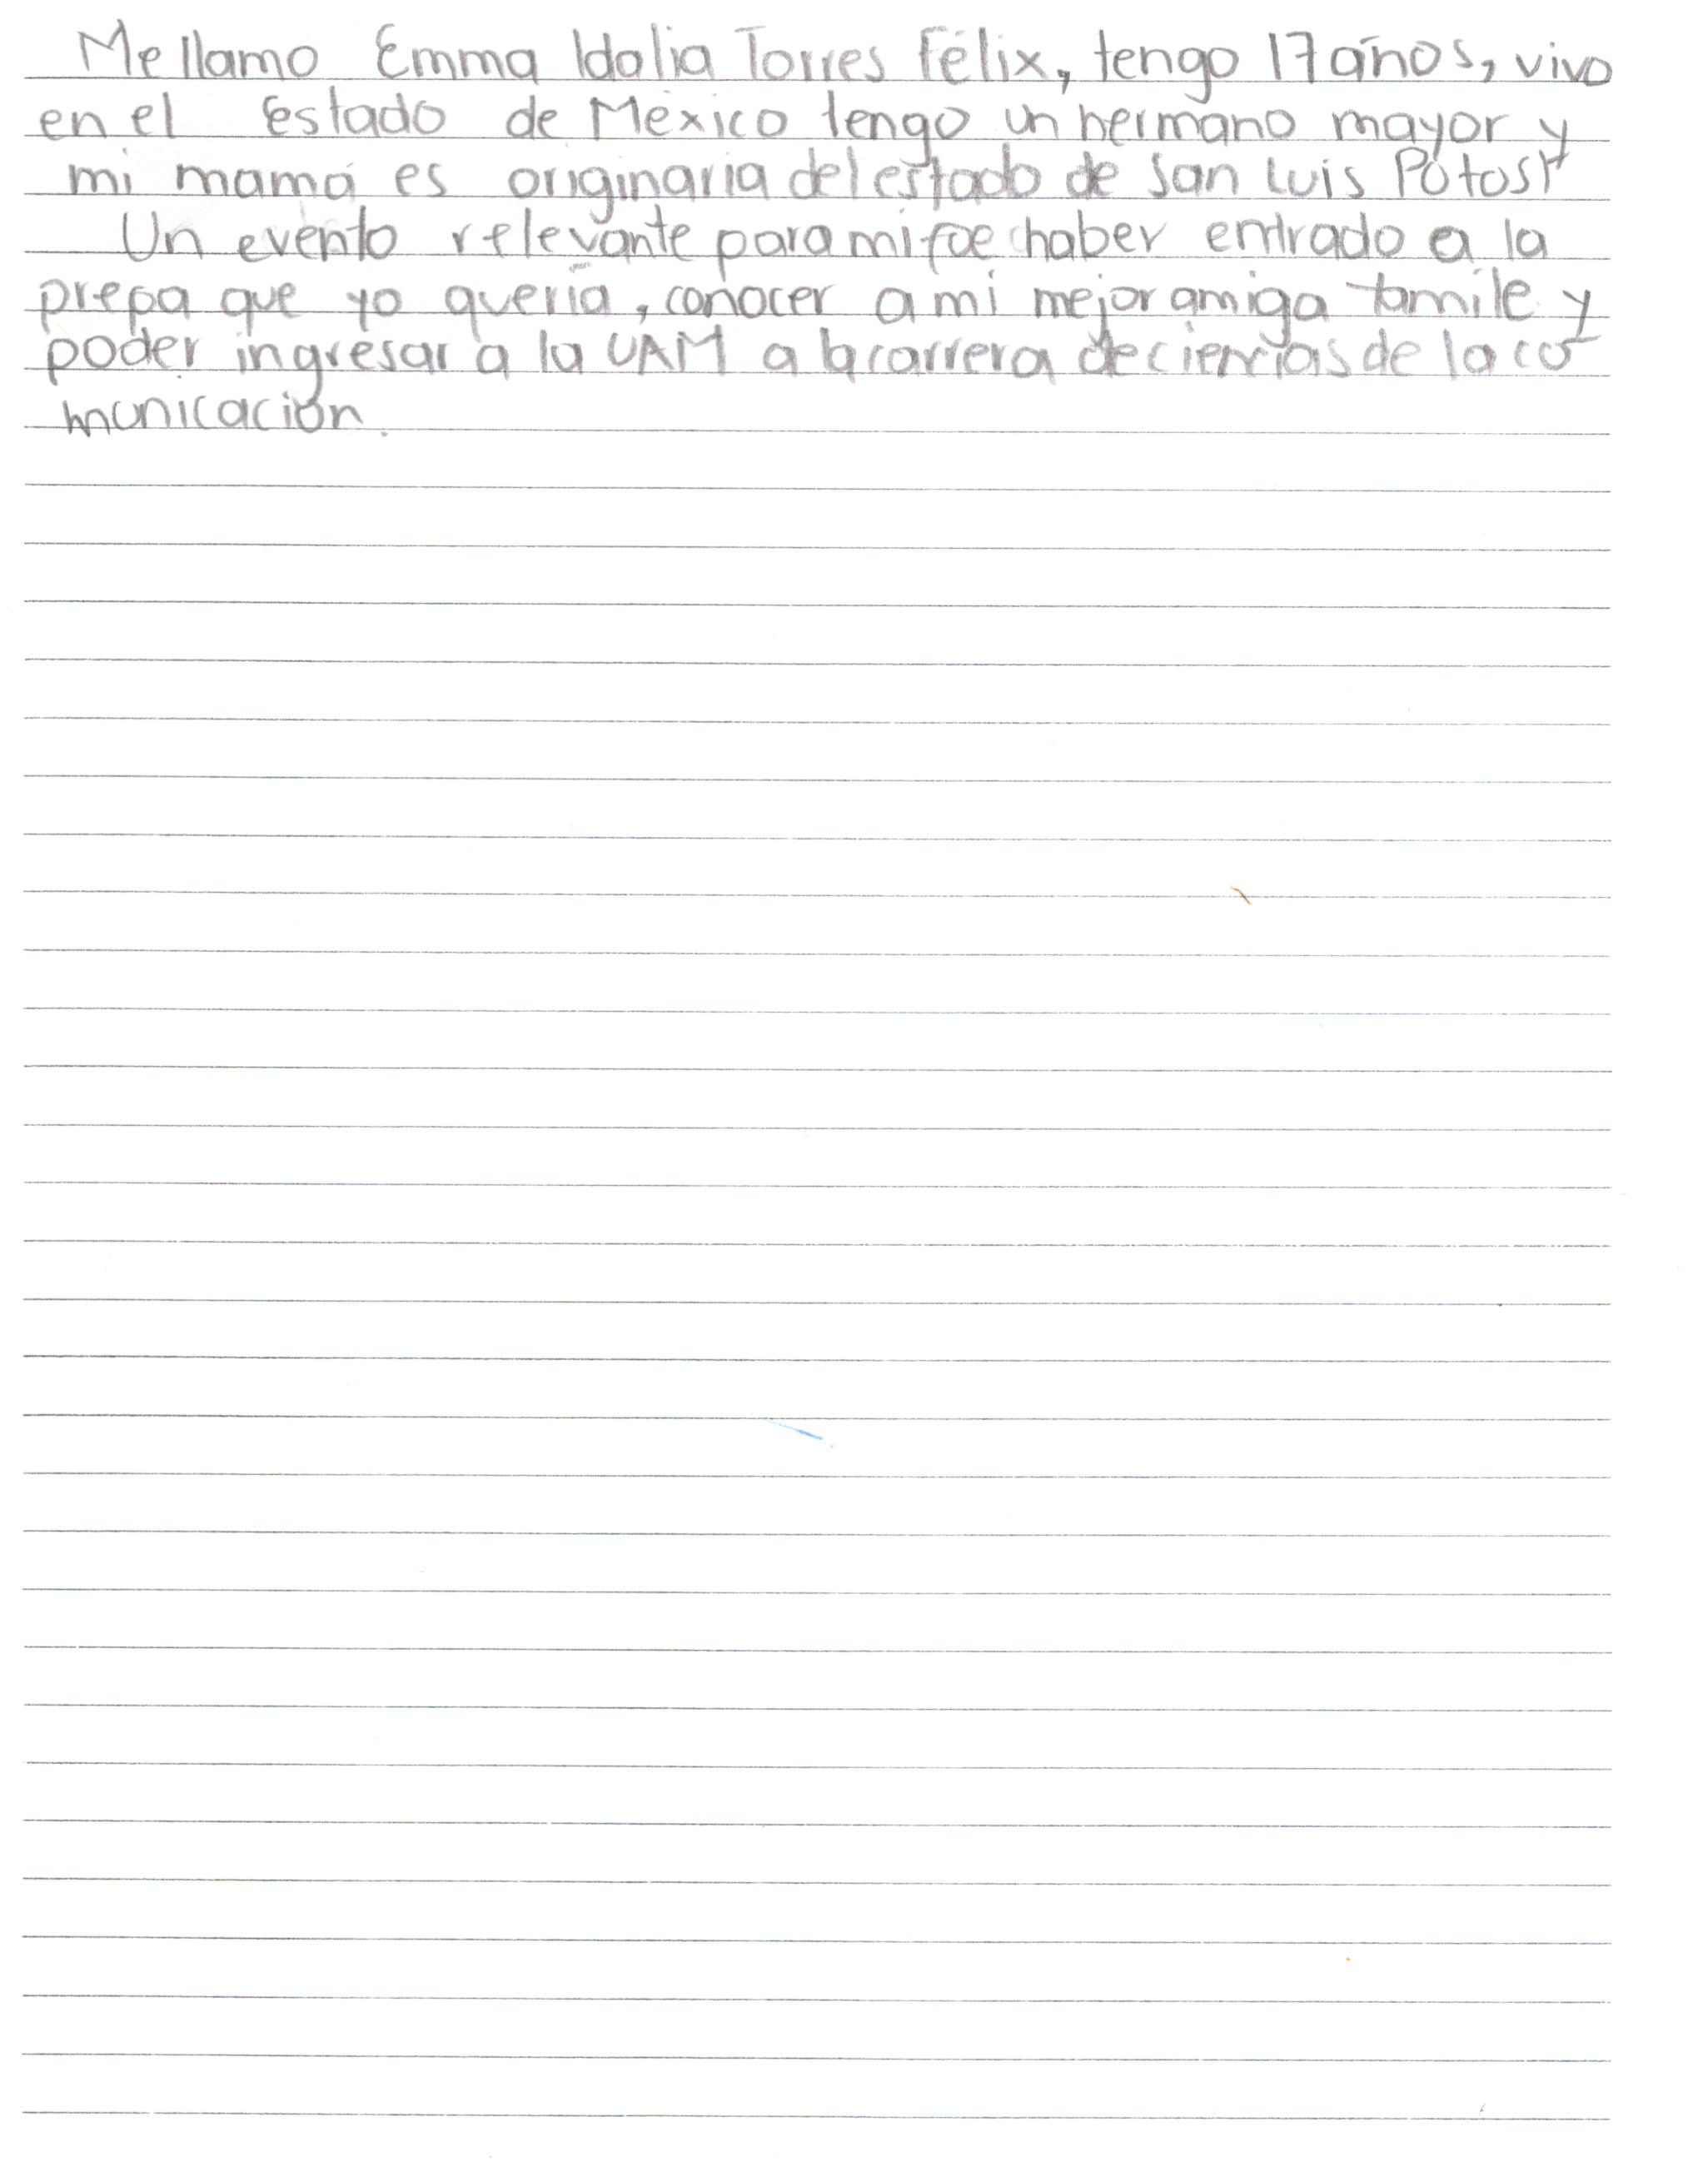 Me llamo Emma Idalia Torres Félix, tengo 17 años, vivo
en el Estado de México tengo un hermano mayor y
mi mamá es originaria del estado de San Luis Potosí
Un evento relevante para mi fue haber entrado a la
prepa que yo quería, conocer a mi mejor amiga tamile y
poder ingresar a la UAM a la carrera de ciencias de la co-
municación.